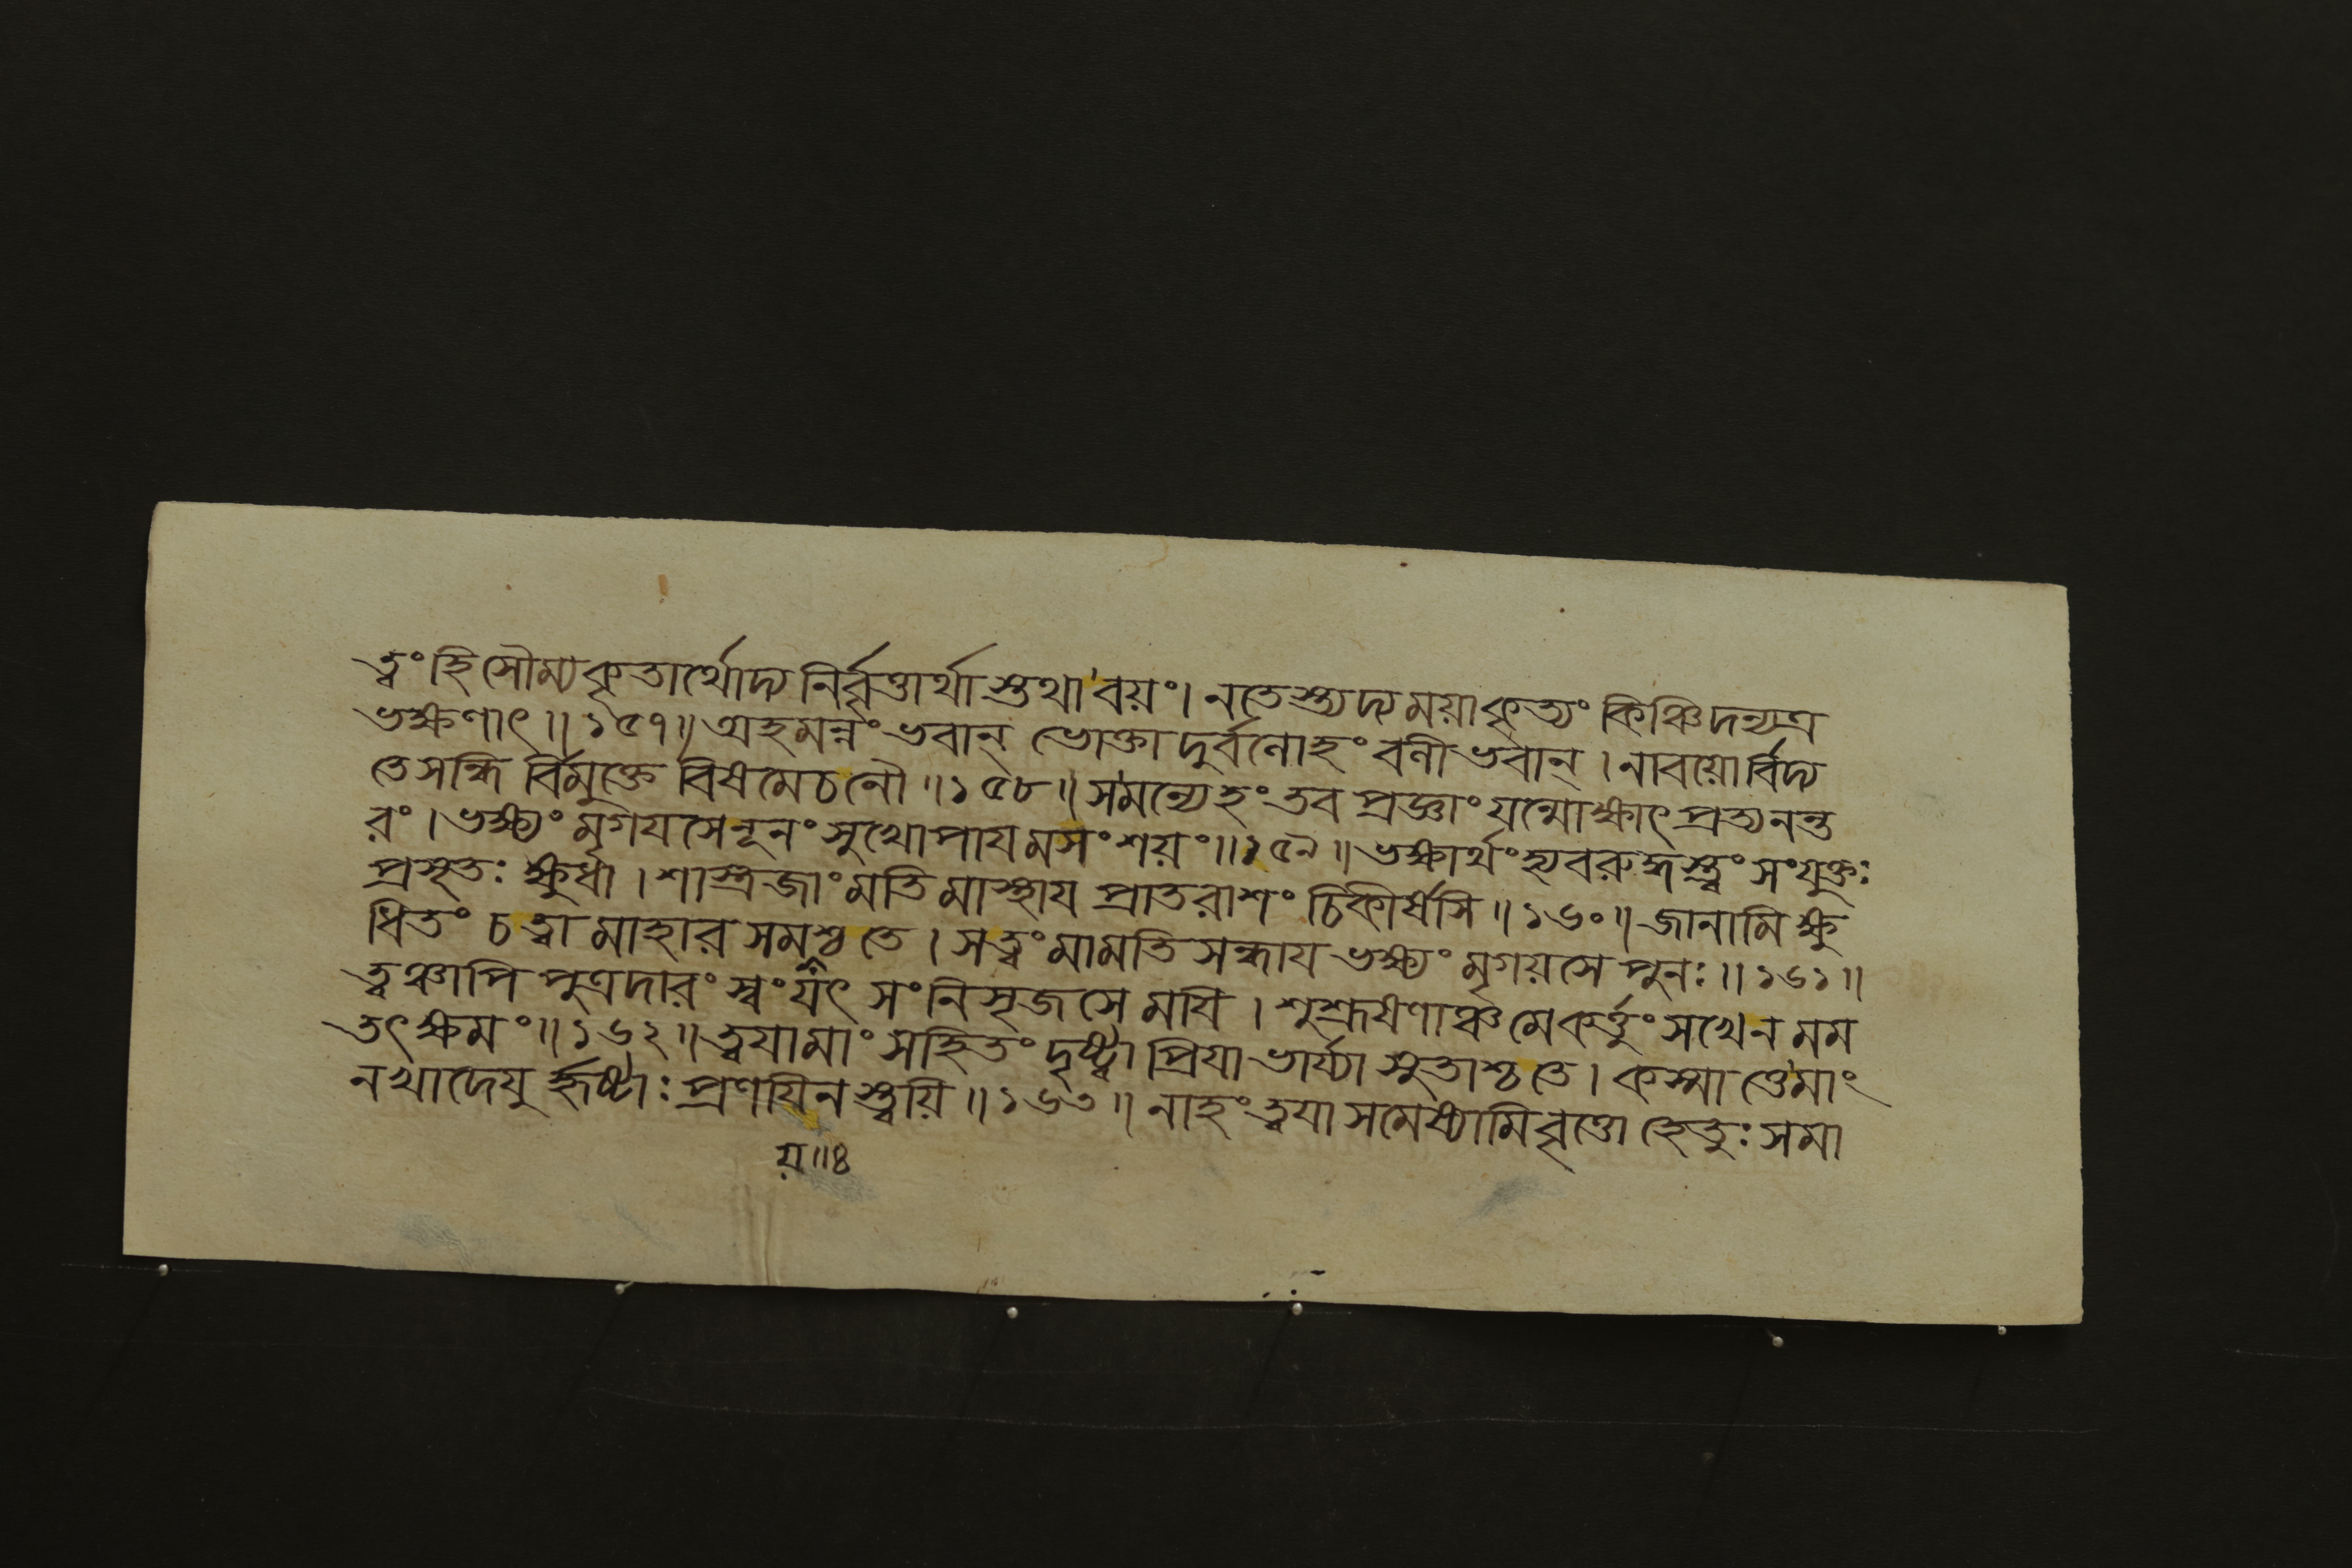 ত্বংহিসৌম্যকৃতার্থোদ্য নির্বৃত্তার্থাস্তথা'বয়ং। নতেস্ত্যদ্যময়াকৃত্যং কিঞ্চিদন্যত্র
ভক্ষণাৎ॥১৫৭॥অহমন্নংভবান্ ভোক্তা দুর্বলোহংবলীভবান্।নাবয়োর্বিদ্য
তেসন্ধি র্বিমুক্তে বিষমেচলৌ॥১৫৮॥সমন্যেহংতব প্রজ্ঞাংযন্মোক্ষাৎপ্রত্যনন্ত
রং।ভক্ষ্যংমৃগযসেনূনং সুখোপাযমসংশয়ং॥১৫৯॥ভক্ষার্থংহ্যবরুদ্ধস্ত্বংসংযুক্তঃ
প্রসূতঃক্ষুধা।শাস্ত্রজাংমতিমাস্থায প্রাতরাশংচিকীর্ষসি॥১৬০॥জানামিক্ষু
ধিতংচত্বামাহারসমশ্বতে।সত্বংমামতিসন্ধায ভক্ষ্যংমৃগয়সেপুনঃ॥১৬১॥
ত্বঞ্চাপিপুত্রদারংস্বংযৎসংনিসৃজসেমযি।শুশ্রূষণাঞ্চমেকর্ত্তুংসখেনমম
তৎক্ষমং॥১৬২॥ত্বযামাংসহিতংদৃষ্ট্বাপ্রিযাভার্য্যাসুতাশ্চতে।কস্মাত্তেমাং
নখাদেযুর্হৃষ্টাঃপ্রণযিনস্ত্বয়ি॥১৬৩॥নাহংত্বযাসমেষ্যামিবৃত্তোহেতুঃসমা
য়॥৪